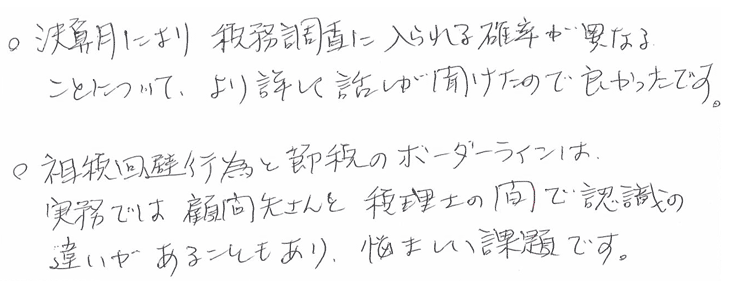 ○ 決算月により 税務調査に入られる確率が異なる
ことについて、より詳しく話しが聞けたので良かったです。
○ 租税回避行為と節税のボーダーラインは、
実務では顧問先さんと税理士の間で認識の
違いがあることもあり、悩ましい課題です。